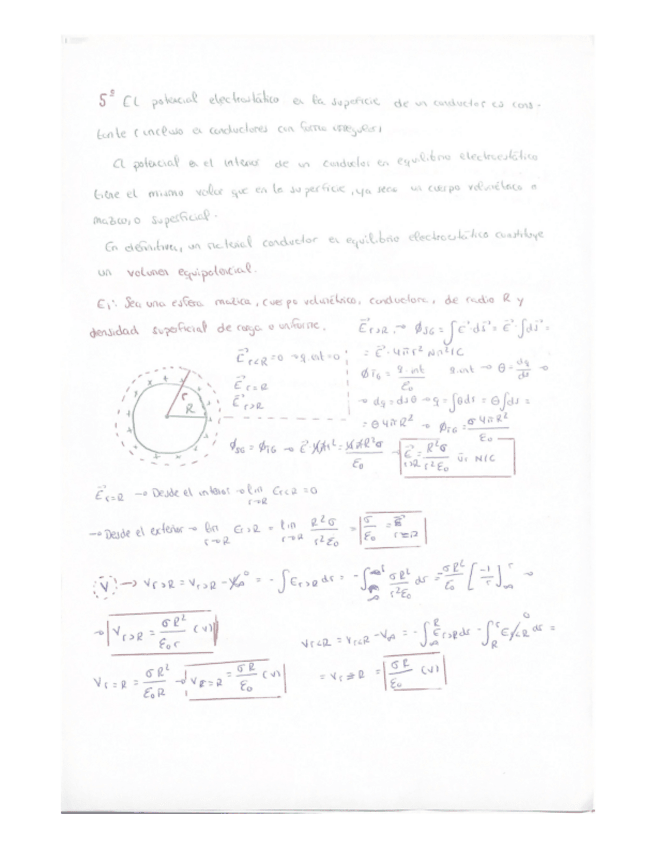 5º El potencial electrostático en la superficie de un conductor es cons-
tante (incluso en conductores con forma irregular)
El potencial en el interior de un conductor en equilibrio electrostático
tiene el mismo valor que en la superficie, ya sea un cuerpo volumétrico o
macizo, o superficial.
En definitiva, un material conductor en equilibrio electrostático constituye
un volumen equipotencial.
Ej: Sea una esfera maciza, cuerpo volumétrico, conductora, de radio R y
densidad superficial de carga σ uniforme.
E⃗r>R → ϕSG = ∫E⃗·ds⃗ = E⃗·∫ds⃗ =
= E⃗·4πr² Nm²/C
E⃗r<R = 0 → q.int = 0
E⃗r=R
E⃗r>R
r
R
ϕTG = q.int/ε₀ q.int → σ = dq/ds →
→ dq = dsσ → q = ∫σds = σ∫ds =
= σ4πR² → ϕTG = σ4πR²/ε₀
ϕSG = ϕTG → E⃗ 4πr² = 4πR²σ/ε₀ → E⃗r>R = R²σ/r²ε₀ u⃗r N/C
E⃗r=R → Desde el interior → lim r→R Er<R = 0
→ Desde el exterior → lim r→R Er>R = lim r→R R²σ/r²ε₀ = σ/ε₀ = E⃗r=R
V → Vr>R = Vr>R - V∞ = -∫Er>R dr = -∫ σR²/r²ε₀ dr = -σR²/ε₀ [-1/r] →
→ Vr>R = σR²/ε₀r (V)
Vr<R = Vr<R - V∞ = -∫Er>R dr - ∫Er<R dr =
Vr=R = σR²/ε₀R → Vr=R = σR/ε₀ (V)
= Vr=R = σR/ε₀ (V)